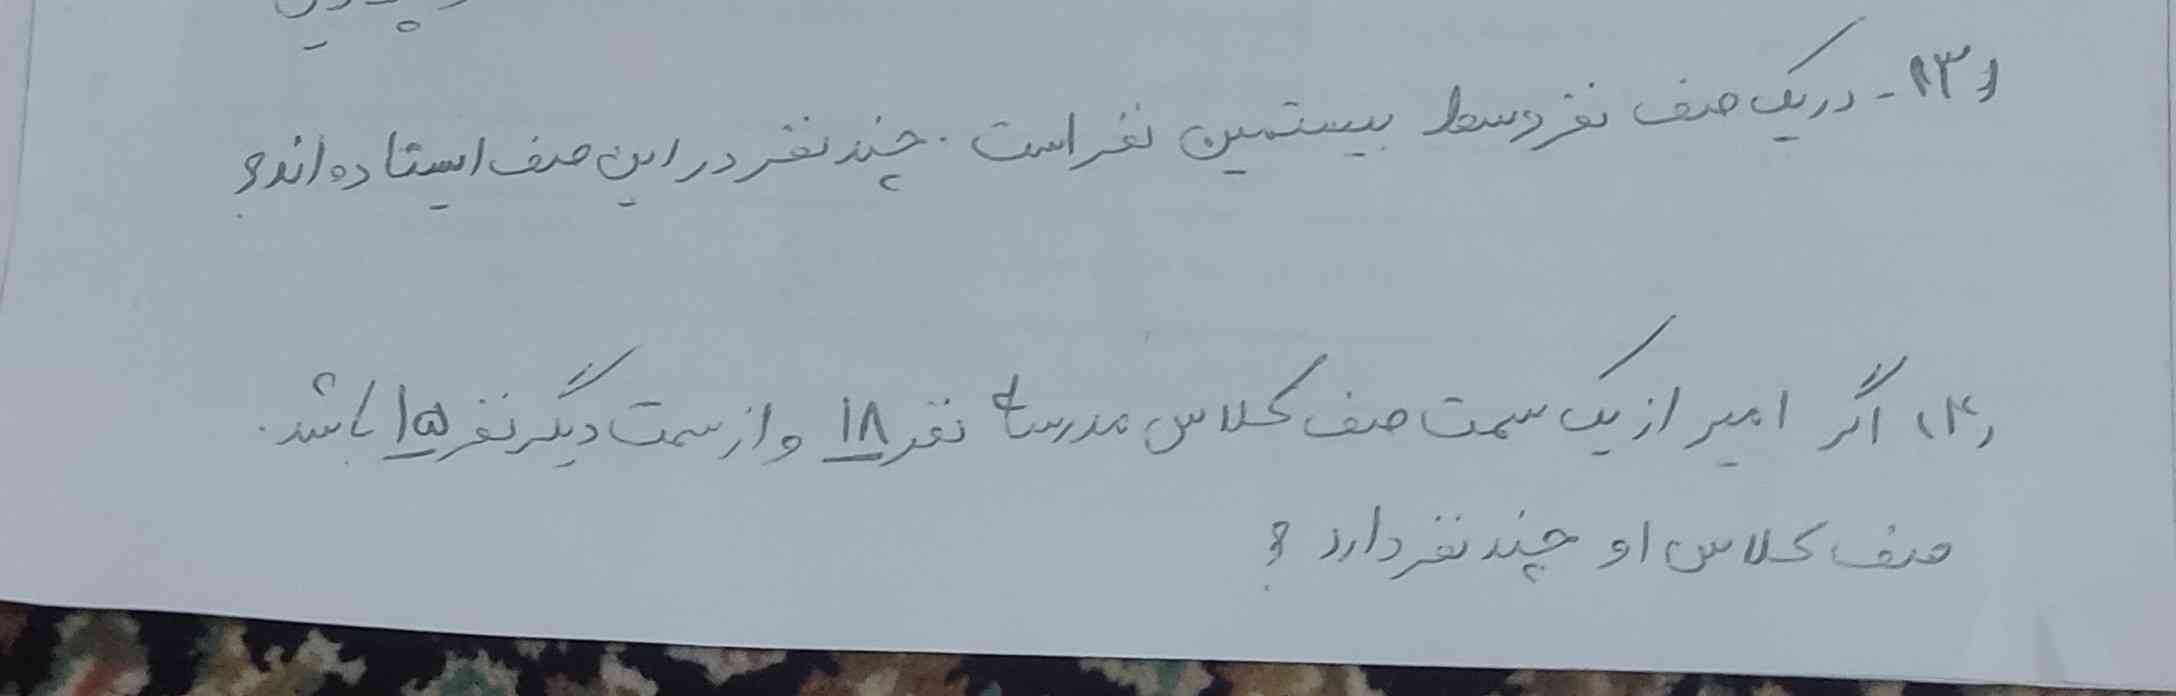 ۱۳- در یک صف نفر وسط بیستمین نفر است. چند نفر در این صف ایستاده اند؟
۱۴) اگر امیر از یک سمت صف کلاس مدرسه نفر ۱۸ و از سمت دیگر نفر ۱۵ باشد.
صف کلاس او چند نفر دارد؟